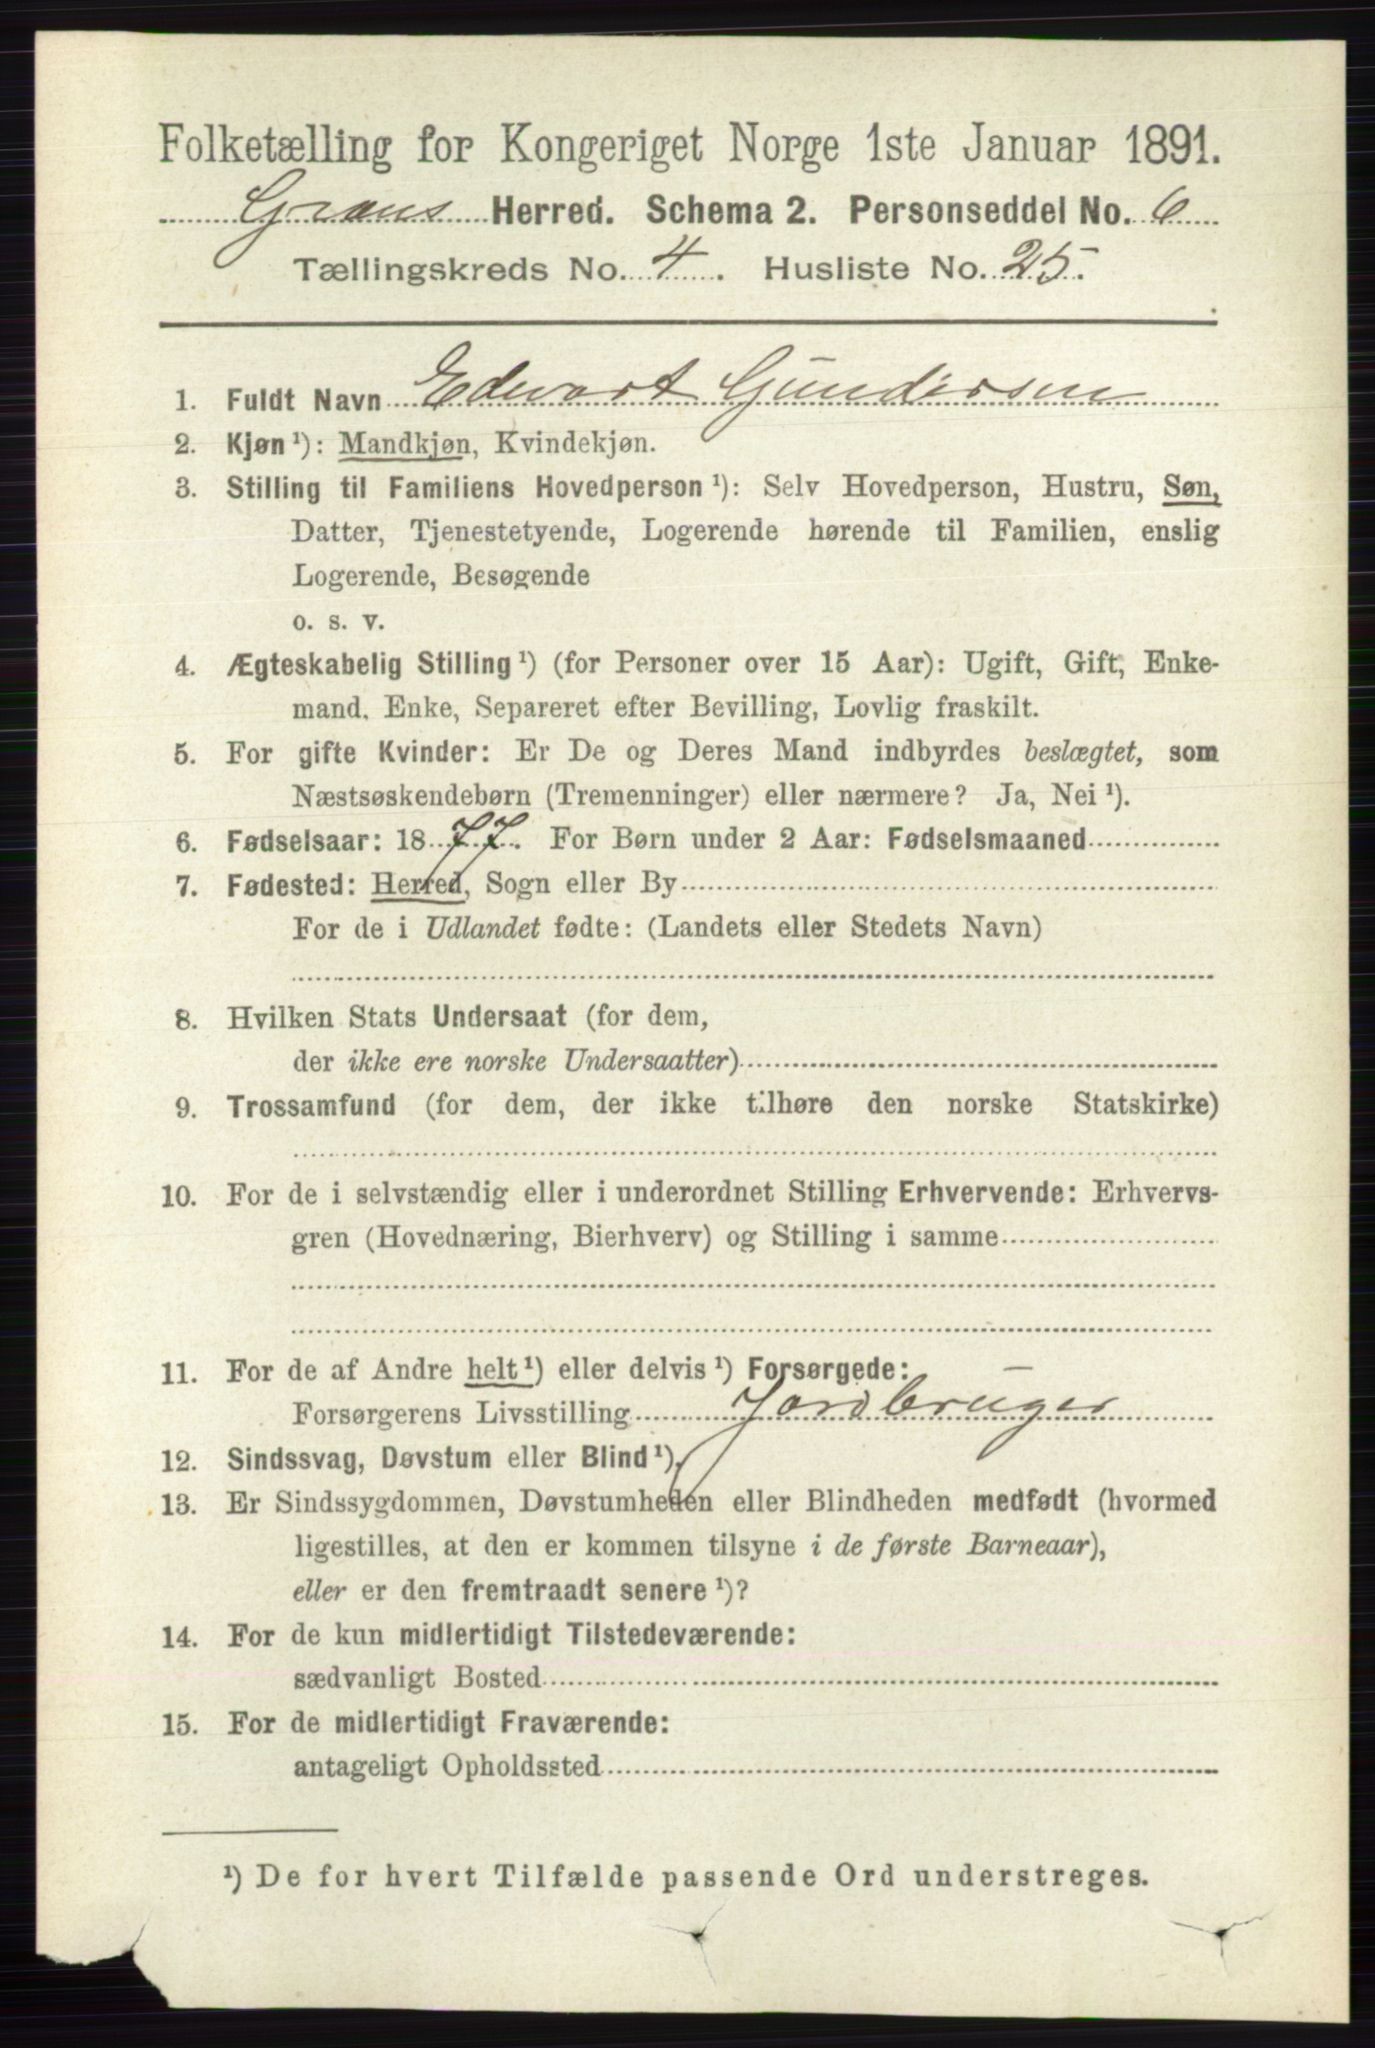 Folketælling for Kongeriget Norge 1ste Januar 1891.
Grans Herred. Schema 2. Personseddel No. 6
Tællingskreds No. 4. Husliste No. 25.
1. Fuldt Navn Edvart Gundersen
2. Kjøn¹): Mandkjøn, Kvindekjøn.
3. Stilling til Familiens Hovedperson¹): Selv Hovedperson, Hustru, Søn,
Datter, Tjenestetyende, Logerende hørende til Familien, enslig
Logerende, Besøgende
o. s. v.
4. Ægteskabelig Stilling¹) (for Personer over 15 Aar): Ugift, Gift, Enke-
mand, Enke, Separeret efter Bevilling, Lovlig fraskilt.
5. For gifte Kvinder: Er De og Deres Mand indbyrdes beslægtet, som
Næstsøskendebørn (Tremenninger) eller nærmere? Ja, Nei¹).
6. Fødselsaar: 1877. For Børn under 2 Aar: Fødselsmaaned
7. Fødested: Herred, Sogn eller By
For de i Udlandet fødte: (Landets eller Stedets Navn)
8. Hvilken Stats Undersaat (for dem,
der ikke ere norske Undersaatter)
9. Trossamfund (for dem, der ikke tilhøre den norske Statskirke)
10. For de i selvstændig eller i underordnet Stilling Erhvervende: Erhvervs-
gren (Hovednæring, Bierhverv) og Stilling i samme
11. For de af Andre helt¹) eller delvis¹) Forsørgede:
Forsørgerens Livsstilling Jordbruger
12. Sindssvag, Døvstum eller Blind¹).
13. Er Sindssygdommen, Døvstumheden eller Blindheden medfødt (hvormed
ligestilles, at den er kommen tilsyne i de første Barneaar),
eller er den fremtraadt senere¹)?
14. For de kun midlertidigt Tilstedeværende:
sædvanligt Bosted
15. For de midlertidigt Fraværende:
antageligt Opholdssted
¹) De for hvert Tilfælde passende Ord understreges.